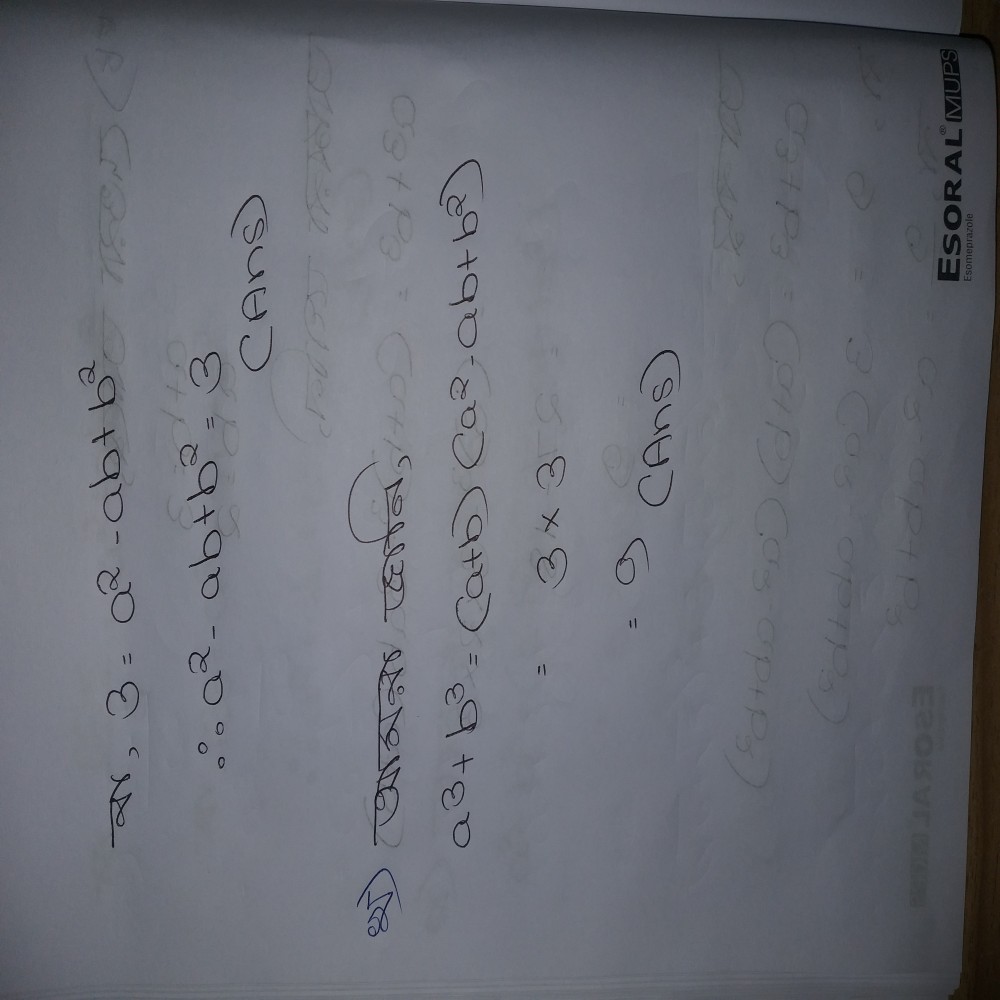 বা, 3 = a² - ab + b²
∴ a² - ab + b² = 3
(Ans)
আমরা জানি,
a³ + b³ = (a+b) (a² - ab + b²)
= 3 × 3
= 9 (Ans)
ESORAL® MUPS
Esomeprazole